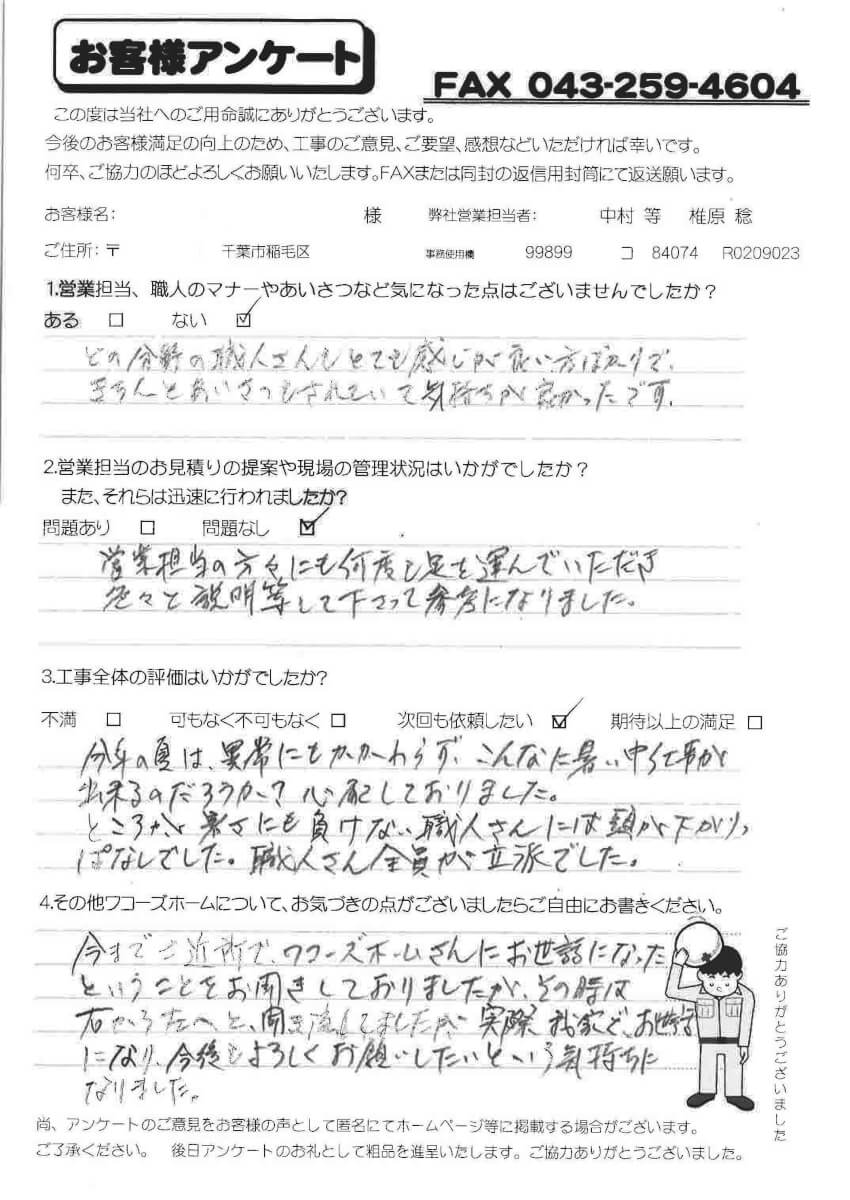 お客様アンケート
FAX 043-259-4604
この度は当社へのご用命誠にありがとうございます。
今後のお客様満足の向上のため、工事のご意見、ご要望、感想などいただければ幸いです。
何卒、ご協力のほどよろしくお願いいたします。FAXまたは同封の返信用封筒にて返送願います。
お客様名: 様 弊社営業担当者: 中村 等 椎原 稔
ご住所:〒 千葉市稲毛区 事務使用欄 99899 コ 84074 R0209023
1.営業担当、職人のマナーやあいさつなど気になった点はございませんでしたか?
ある □ ない ☑
どの分野の職人さんもとても感じが良い方ばかりで、
きちんとあいさつもされていて気持ちが良かったです。
2.営業担当のお見積りの提案や現場の管理状況はいかがでしたか?
また、それらは迅速に行われましたか?
問題あり □ 問題なし ☑
営業担当の方々にも何度も足を運んでいただき
色々と説明等して下さって参考になりました。
3.工事全体の評価はいかがでしたか?
不満 □ 可もなく不可もなく □ 次回も依頼したい ☑ 期待以上の満足 □
今年の夏は、異常にもかかわらず、こんなに暑い中仕事が
出来るのだろうか?心配しておりました。
ところが暑さにも負けない職人さんには頭が下がりっ
ぱなしでした。職人さん全員が立派でした。
4.その他ワコーズホームについて、お気づきの点がございましたらご自由にお書きください。
今までご近所で、ワコーズホームさんにお世話になった
ということをお聞きしておりましたが、その時は
右から左へと、聞き流してましたが実際我家で、お世話
になり、今後もよろしくお願いしたいという気持ちに
なりました。
ご協力ありがとうございました
尚、アンケートのご意見をお客様の声として匿名にてホームページ等に掲載する場合がございます。
ご了承ください。 後日アンケートのお礼として粗品を進呈いたします。ご協力ありがとうございました。